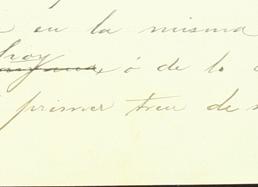 en la misma
hoy
ó de lo
primer tren de